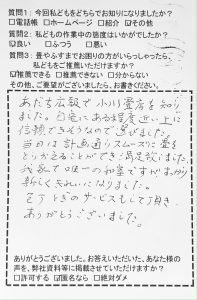 質問1:今回私どもをどちらでお知りになりましたか?
□電話帳 □ホームページ □紹介 ☑その他
質問2:私どもの作業中の態度はいかがでしたか?
☑良い □ふつう □悪い
質問3:畳やふすまでお困りの方がいらっしゃったら、
私どもをご推薦いただけますか?
☑推薦できる □推薦できない □分からない
その他、ご要望がございましたら、お書きください。
あだち広報で小川畳店を知り
ました。自宅にある程度近い上に
信頼できそうなので選びました。
当日は計画通りスムーズに畳を
とりかえることができ、満足致しました。
我家で唯一の和室ですがすっかり
新しくきれいになりました。
アフトどきのサービスもして頂き、
ありがとうございました。
ありがとうございました。お答えいただいた、あなた様の
声を、弊社資料等に掲載させていただけますか?
□許可する ☑匿名なら □絶対ダメ